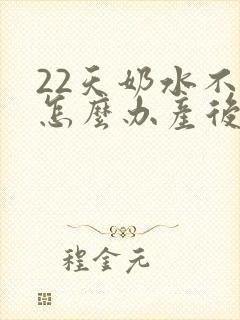 22天奶水不
怎麼办産後
程金元